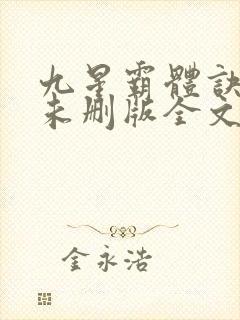 九星霸體訣
未刪版全文
金永浩